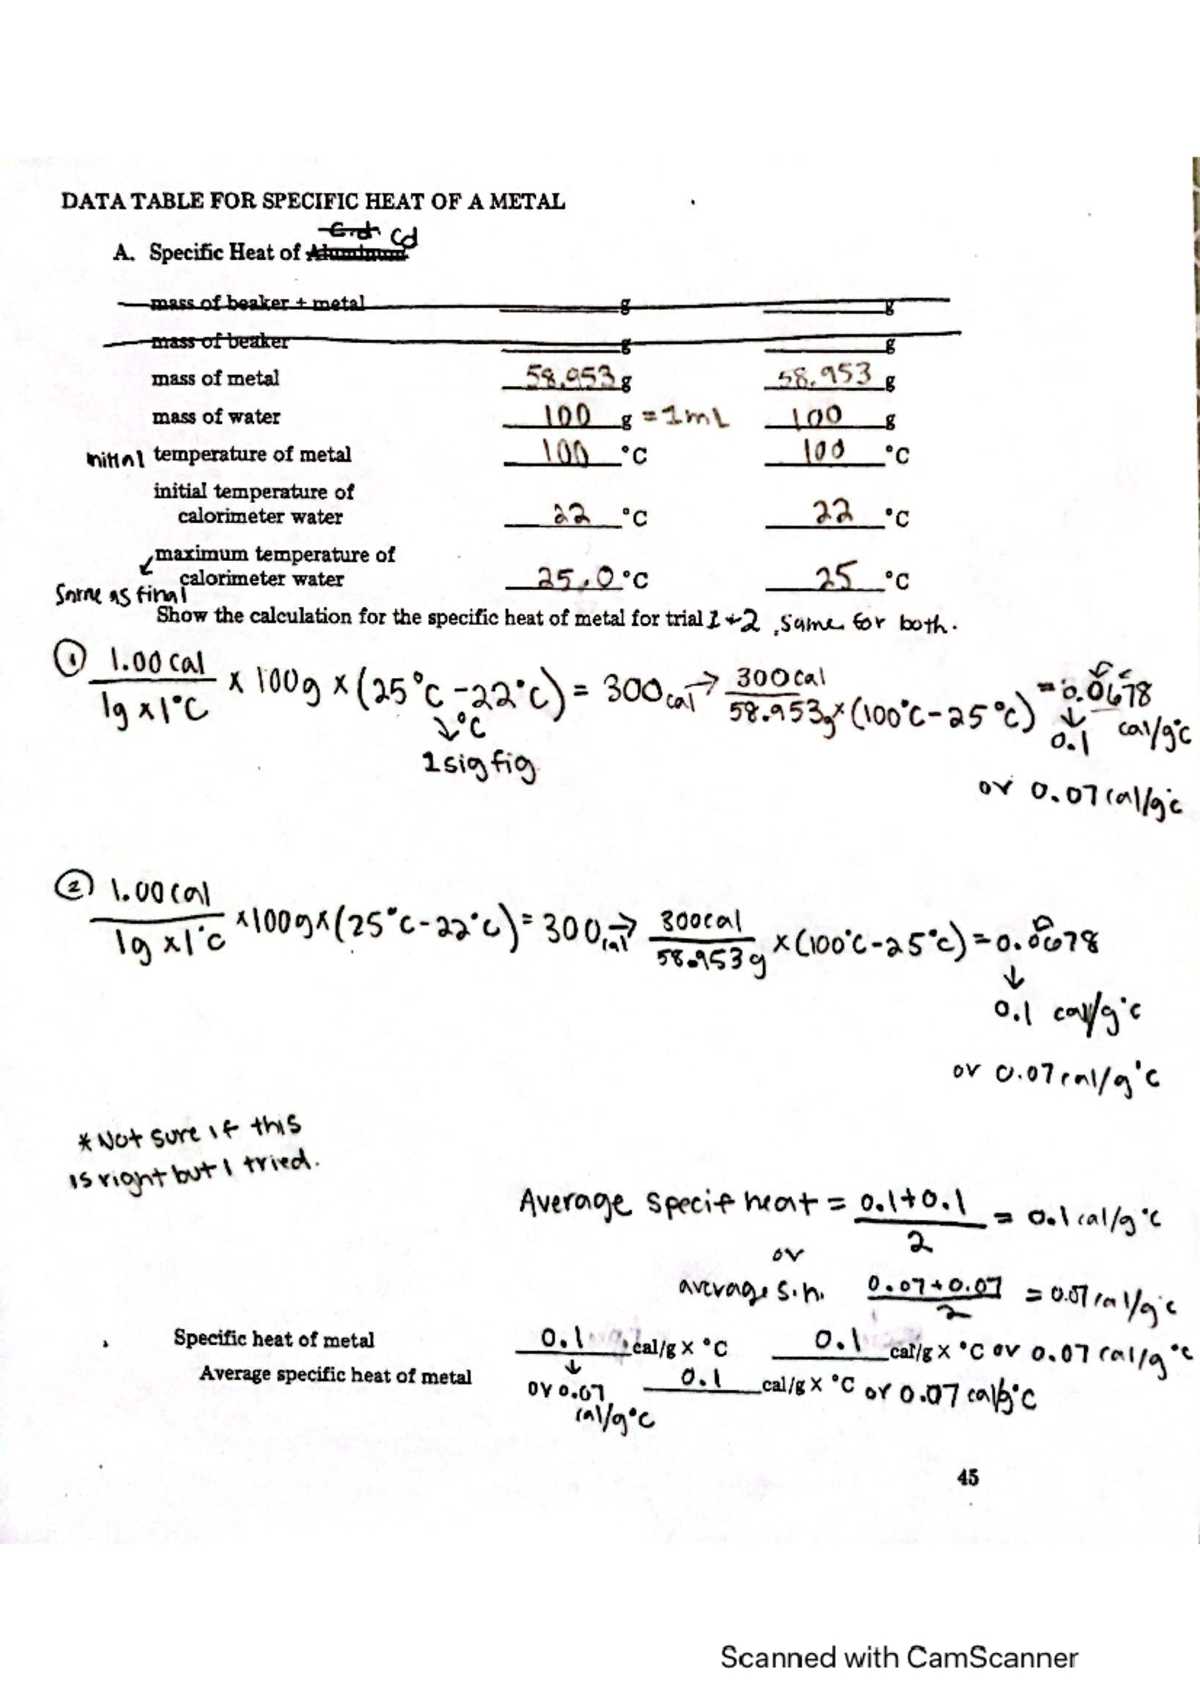 DATA TABLE FOR SPECIFIC HEAT OF A METAL
Cd
A. Specific Heat of Aluminum
mass of beaker + metal g g
mass of beaker g g
mass of metal 58.953 g 58.953 g
mass of water 100 g = 1mL 100 g
initial temperature of metal 100 °C 100 °C
initial temperature of
calorimeter water 22 °C 22 °C
maximum temperature of
calorimeter water 25.0 °C 25 °C
Same as final
Show the calculation for the specific heat of metal for trial 1+2, same for both.
① 1.00 cal / 1g x 1°C x 100g x (25°C - 22°C) = 300 cal → 300 cal / 58.953g x (100°C - 25°C) = 0.0678 cal/g°C
↓ °C ↓
1 sig fig 0.1
or 0.07 cal/g°C
② 1.00 cal / 1g x 1°C x 100g x (25°C - 22°C) = 300 cal → 300 cal / 58.953g x (100°C - 25°C) = 0.0678
↓
0.1 cal/g°C
or 0.07 cal/g°C
* Not sure if this
is right but I tried.
Average specif heat = 0.1 + 0.1 / 2 = 0.1 cal/g°C
or
average s.h. 0.07 + 0.07 / 2 = 0.07 cal/g°C
Specific heat of metal 0.1 cal/g x °C 0.1 cal/g x °C or 0.07 cal/g°C
↓
Average specific heat of metal 0.1 cal/g x °C or 0.07 cal/g°C
or 0.07
cal/g°C
45
Scanned with CamScanner